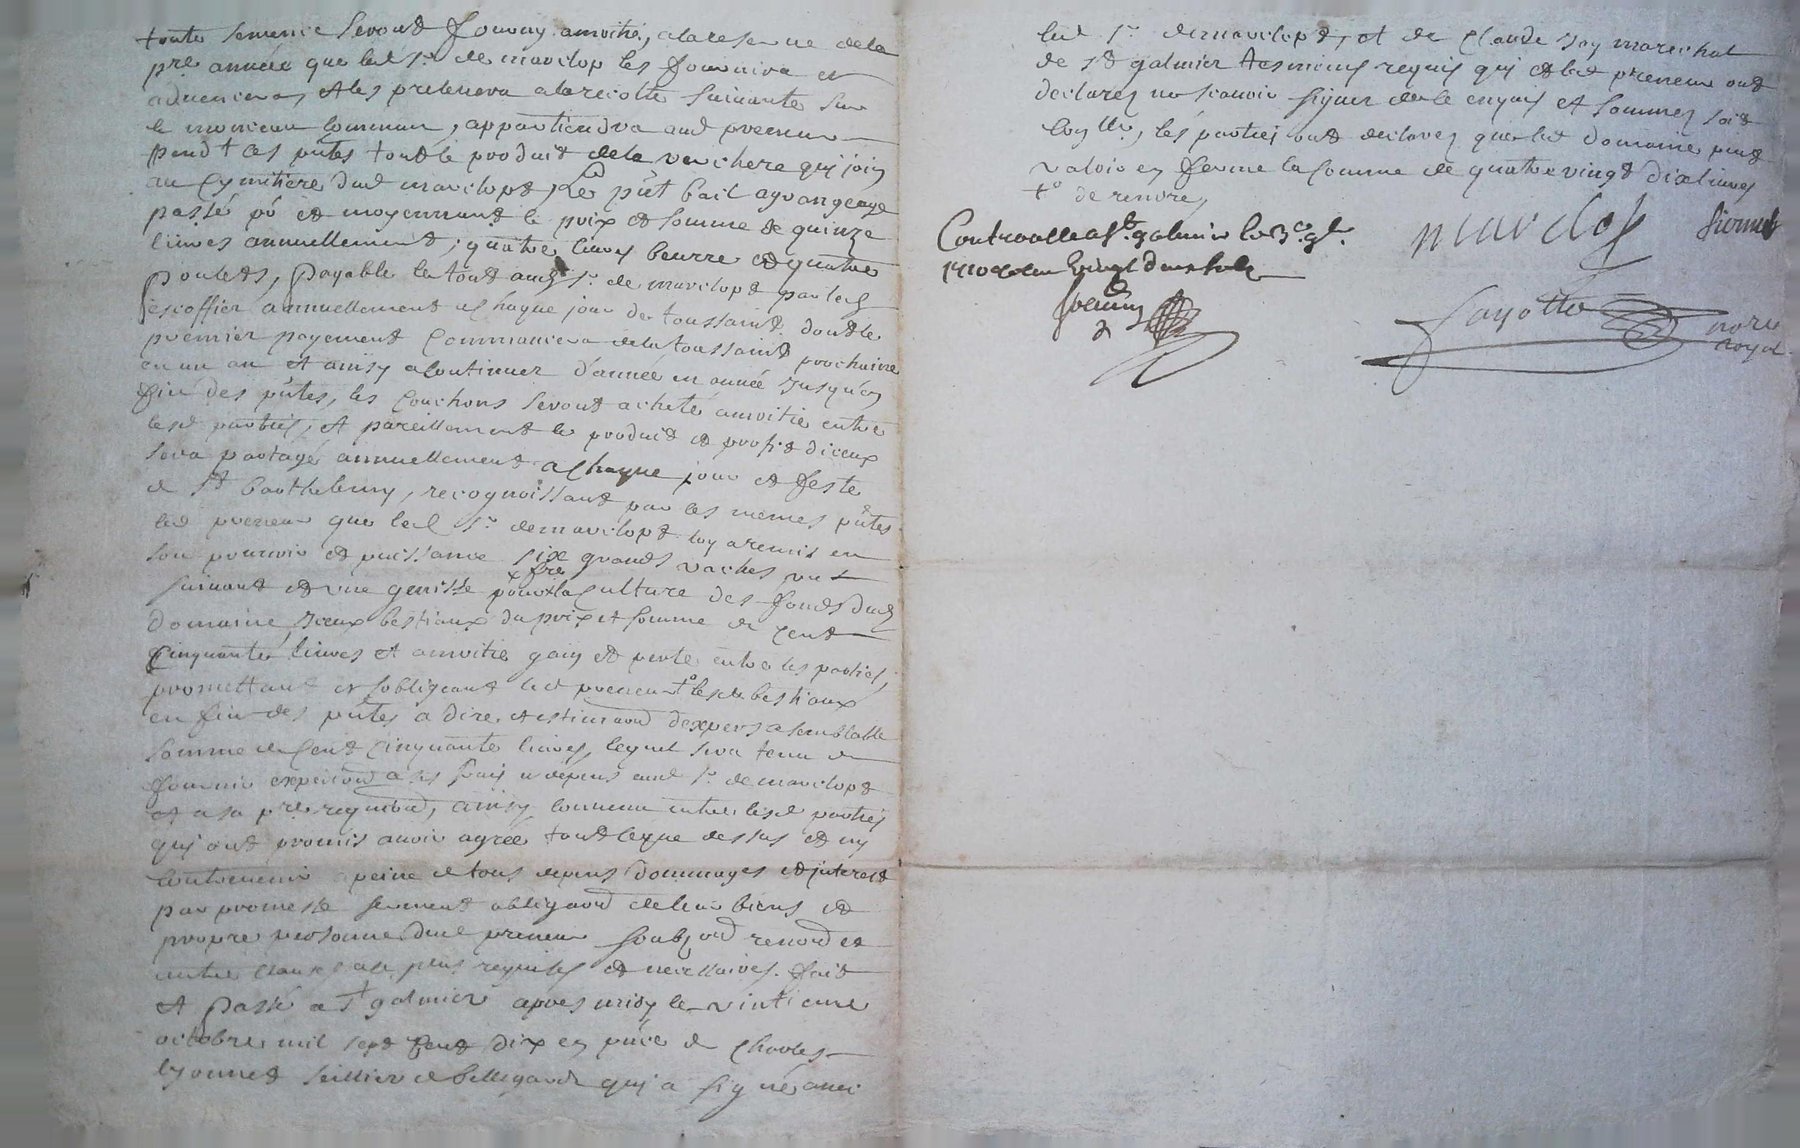 toutte semence seront fournys amoitié, alareserve dela
pre année que led sr de marclop les fournira et
advencera, et les prelevera alarecolte suivante sur
le monceau commun, appartiendra aud preneur
pendt ces pntes tout le produit dela verchere qui join
au cymitiere dud marclopt, le pnt bail agrangeage
passé pô et moyennant le prix et somme de quinze
livres annuellement, quatre livres beurre et quatre
poulets, payable le tout aud sr de marclopt par led
escoffier annuellement a chaque jour de toussaint dont le
premier payement commancera dela toussaint prochaine
en un an et ainsy a continuer d'année en année jusqu'en
fin des pntes, les couchons seront acheté amoitie entre
lesd parties, et pareillement le produit et profit diceux
sera partagé annuellement a chaque jour et feste
de st barthelemy, recognoissant par les memes pntes
led preneur que led sr de marclopt luy a remis en
son pouvoir et puissance six grands vaches
suivant et une genisse pour la culture des fonds dud
domaine, iceux bestiaux du prix et somme de cent
cinquante livres et amoitie gain et perte entre les parties,
promettant et sobligeant led preneur to lesd bestiaux
en fin des pntes a dire et estimaon dexpers a semblable
somme de cent cinquante livres, lequel sera tenu de
fournir expedion a ses frais et dépens aud sr de marclopt
et a sa pre requision, ainsy convenu entre lesd parties
qui ont promis avoir agreé tout ceque dessus et ny
contrevenir a peine de tous depens dommages et interest
par promesse serment obligaon de leur biens et
propre personne dud preneur soubzon renon et
autre clauses ale plus requises et necessaires. fait
et passé a st galmier apres midy le vintieme
octobre mil sept cent dix en pnce de charles
lyonnet sellier de bellegarde qui a signé avec
led sr de marclopt, et de claude jay marechal
de st galmier tesmoins requis qui et led preneur ont
declarez ne scavoir signer dele enquis et sommez soit
les parties ont declarez que led domaine peut
valoir en ferme la somme de quatre vingt dix livres
to de rendre,
Controolle a st galmier le 3e 9b.
1710
marclop
lionnet
fayotte
nore
royal